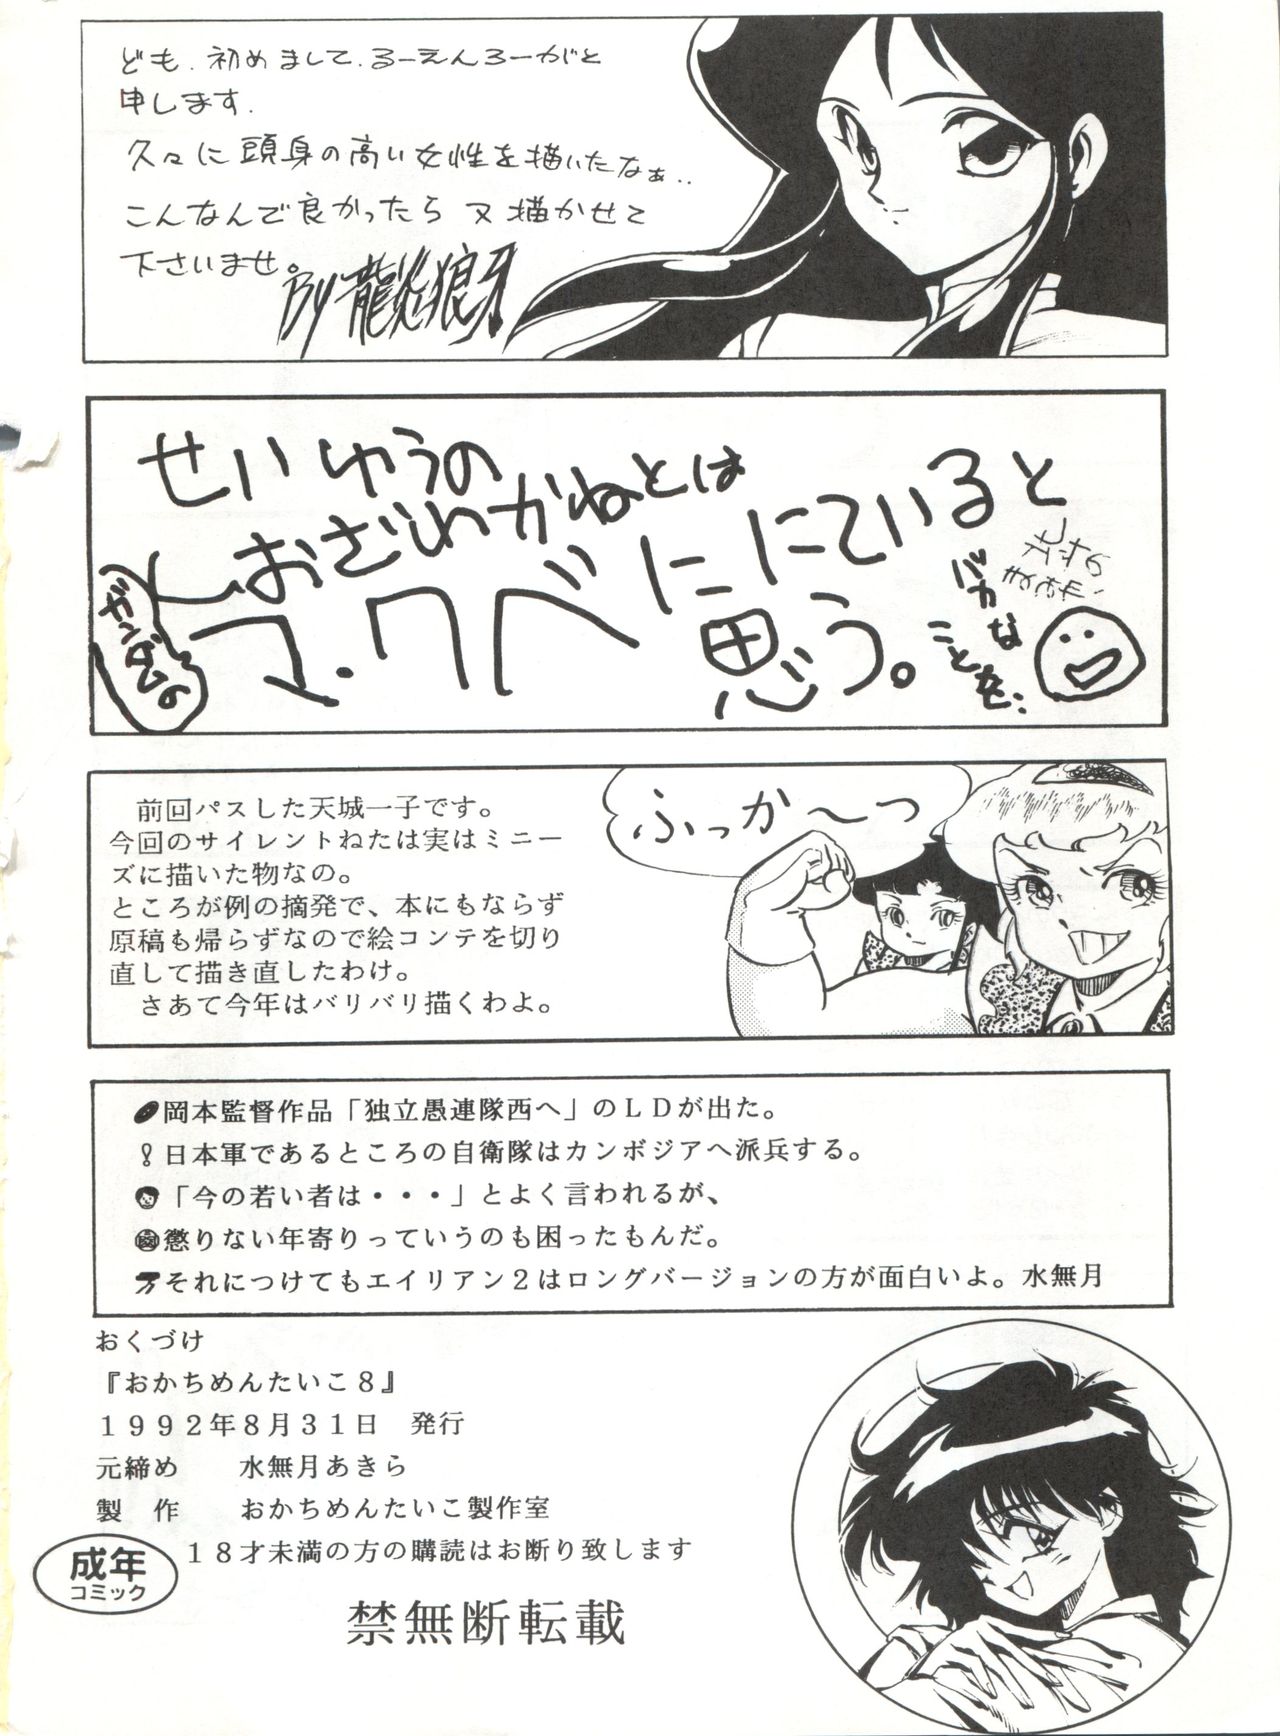 ども、初めまして、るーえんろーがと
申します.
久々に頭身の高い女性を描いたなぁ..
こんなんで良かったら又描かせて
下さいませ。
By 龍炎狼牙
せいゆうの
おざわかねとは
マ・クベににていると
思う。
ガンダムの
バカな
ことを..
前回パスした天城一子です。
今回のサイレントねたは実はミニー
ズに描いた物なの。
ところが例の摘発で、本にもならず
原稿も帰らずなので絵コンテを切り
直して描き直したわけ。
さあて今年はバリバリ描くわよ。
ふっか〜つ
岡本監督作品「独立愚連隊西へ」のＬＤが出た。
！日本軍であるところの自衛隊はカンボジアへ派兵する。
「今の若い者は・・・」とよく言われるが、
懲りない年寄りっていうのも困ったもんだ。
それにつけてもエイリアン２はロングバージョンの方が面白いよ。水無月
おくづけ
『おかちめんたいこ８』
１９９２年８月３１日　発行
元締め　　水無月あきら
製　作　　おかちめんたいこ製作室
１８才未満の方の購読はお断り致します
成年
コミック
禁無断転載